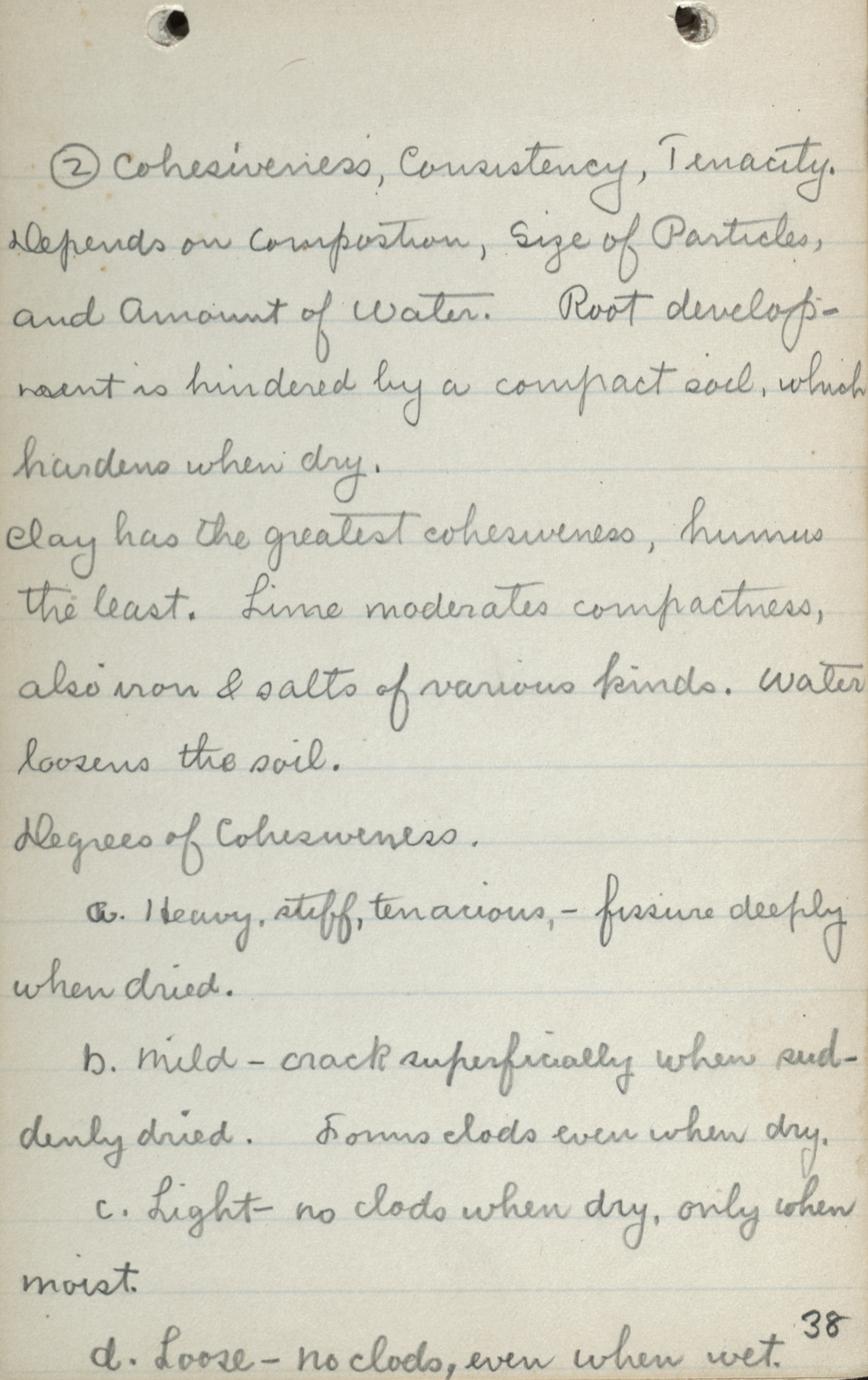 ② Cohesiveness, Consistency, Tenacity.
Depends on Compostion, Size of Particles,
and Amount of Water. Root develop-
ment is hindered by a compact soil, which
hardens when dry.
Clay has the greatest cohesiveness, humus
the least. Lime moderates compactness,
also iron & salts of various kinds. Water
loosens the soil.
Degrees of Cohesiveness.
a. Heavy, stiff, tenacious, - fissure deeply
when dried.
b. Mild - crack superficially when sud-
denly dried. Forms clods even when dry.
c. Light - no clods when dry, only when
moist.
d. Loose - no clods, even when wet.
38